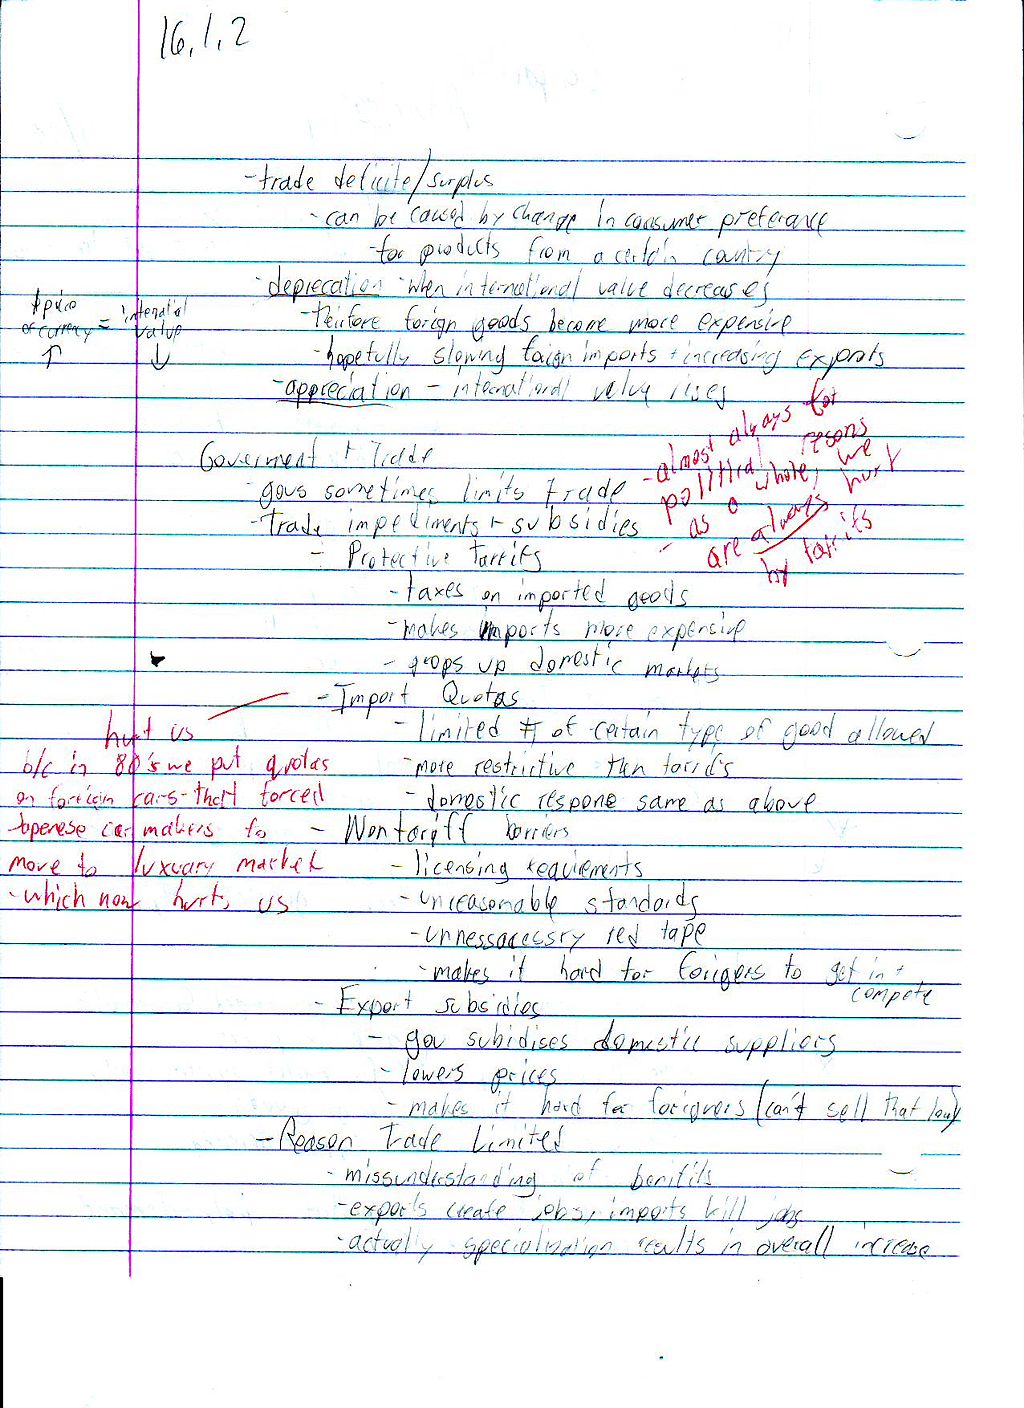 16.1.2
-trade deficite/surplus
-can be caused by change in consumer preferance
-for products from a certain country
-deprecation -when international value decreases
-theirfore forign goods become more expensive
of currency = value
↑ ↓
-hopefully slowing foriegn imports + increasing exports
-appreciation - international value rises
-almost always for
political resons
- as a whole, we
are always hurt
by tarrifs
Goverment + Trade
-govs sometimes limits trade
-Trade impediments + subsidies
- Protective tarrifs
-taxes on imported goods
-makes imports more expensive
-props up domestic markets
-Import Quotas
-limited # of certain type of good allowed
-more restrictive than tarrifs
-domestic respone same as above
hurt us
b/c in 80's we put quotas
on foreign cars-that forced
Japenese car makers to
move to luxuary market
-which now hurts us
- Nontariff barriers
-licensing requirements
-unreasonable standards
-unnessacessry red tape
-makes it hard for forigers to get in +
compete
-Export subsidies
- gov subidises domestic suppliers
-lowers prices
-makes it hard for forigners (can't sell that low)
-Reason Trade Limited
-missunderstanding of benifits
-exports create jobs, imports kill jobs
-actually specialization results in overall increase